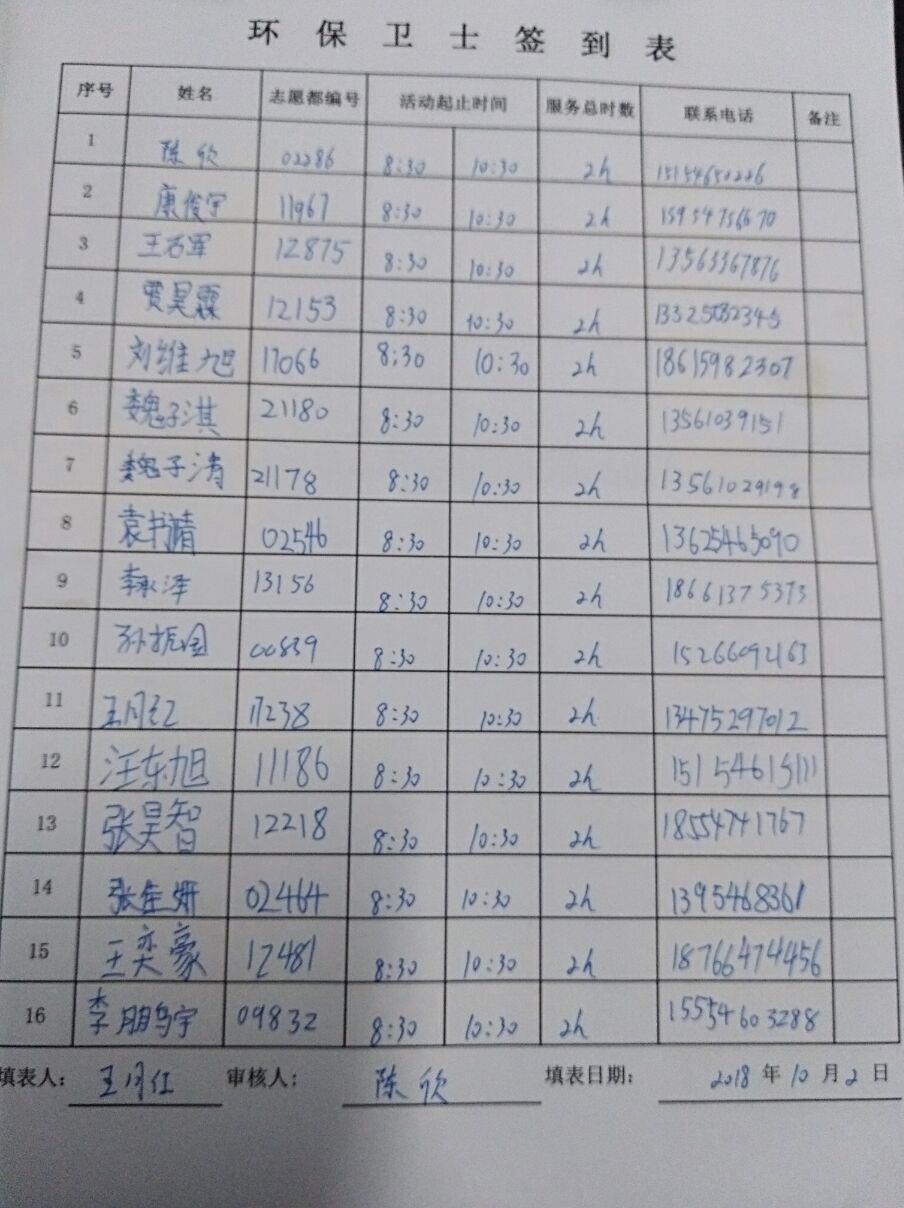 环保卫士签到表
序号 姓名 志愿都编号 活动起止时间 服务总时数 联系电话 备注
1 陈欣 02286 8:30 10:30 2h 15154650226
2 康俊宇 11967 8:30 10:30 2h 15954756670
3 王志军 12875 8:30 10:30 2h 13563367876
4 贾昊霖 12153 8:30 10:30 2h 13325082345
5 刘维旭 17066 8:30 10:30 2h 18615982307
6 魏子淇 21180 8:30 10:30 2h 13561039151
7 魏子清 21178 8:30 10:30 2h 13561029198
8 袁书婧 02546 8:30 10:30 2h 13625465090
9 李承泽 13156 8:30 10:30 2h 18661375373
10 孙振国 00839 8:30 10:30 2h 15266092163
11 王月红 17238 8:30 10:30 2h 13475297012
12 汪东旭 11186 8:30 10:30 2h 15154615111
13 张昊智 12218 8:30 10:30 2h 18554741767
14 张佳妍 02464 8:30 10:30 2h 1395468361
15 王奕豪 12481 8:30 10:30 2h 18766474456
16 李朋鸟宇 09832 8:30 10:30 2h 15554603288
填表人: 王月红 审核人: 陈欣 填表日期: 2018年10月2日